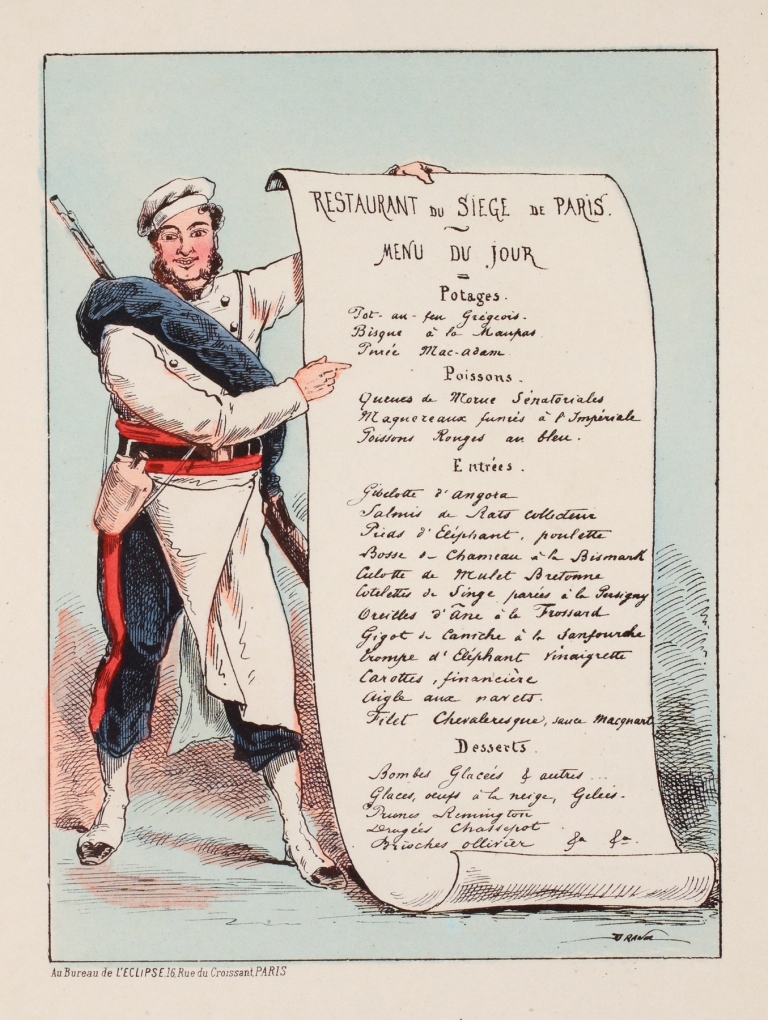 RESTAURANT DU SIEGE DE PARIS.
MENU DU JOUR
Potages.
Pot-au-feu Grégeois.
Bisque à la Maupas
Purée Mac-adam.
Poissons.
Queues de Morue Sénatoriales
Maquereaux fumés à l'Impériale
Poissons Rouges au bleu.
Entrées.
Gibelotte d'angora
Salmis de Rats collecteur
Pieds d'Eléphant, poulette
Bosse de Chameau à la Bismark
Culotte de Mulet Bretonne
Cotelettes de Singe panées à la Persigny
Oreilles d'Âne à la Frossard
Gigot de Caniche à la Janfourche
Trompe d'Eléphant Vinaigrette
Carottes, financière
Aigle aux navets.
Filet Chevaleresque, sauce Macquart
Desserts.
Bombes Glacées & autres...
Glaces, oeufs à la neige, Gelées.
Prunes Remington
Dragées Chassepot
Brioches ollivier &a &a
DRANER
Au Bureau de L'ECLIPSE.16, Rue du Croissant, PARIS